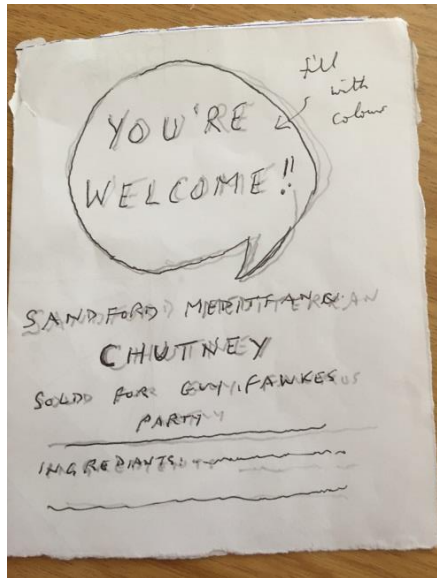 YOU'RE
WELCOME!!
fill
with
colour
SANDFORD
CHUTNEY
SOLD FOR GUY FAWKES
PARTY
INGREDIANTS: